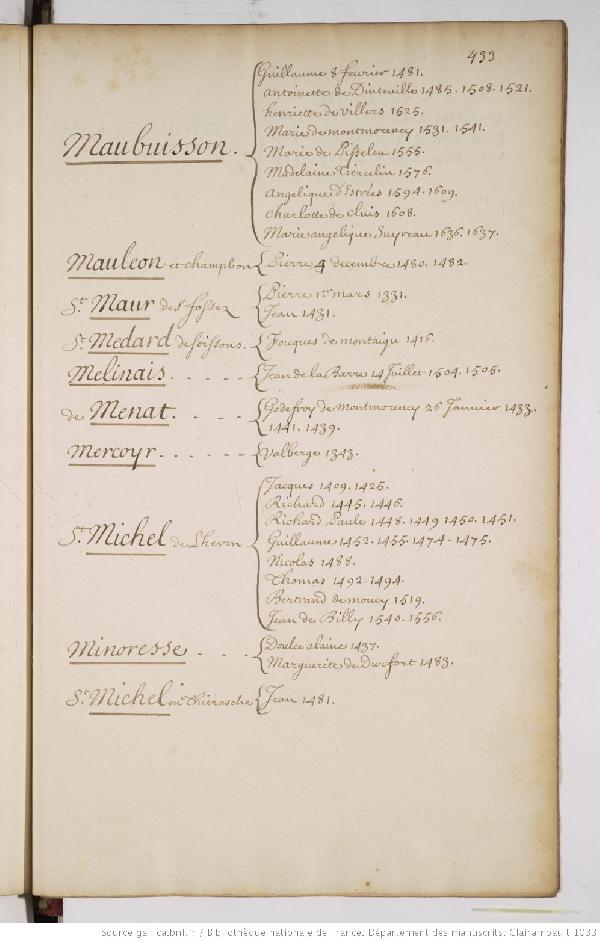 433.
Guillaume 8 fevrier 1481.
Antoinette de Dinteuille 1485. 1508. 1521.
henriette de villers 1525.
Marie de montmorency 1531. 1541.
Maubuisson.
Marie de Pisseleu 1555.
Madelaine Tiercelin 1576.
Angelique d'Estrées 1594. 1609.
Charlotte de Cluis 1608.
Marie angelique Suyreau 1636. 1637.
Mauleon et champbon Pierre 4 decembre 1480. 1482.
St. Maur des fossez
Pierre 1er mars 1331.
Jean 1431.
St. Medard de soissons. Fouques de montaigu 1416.
Melinais. Jean de la Barre 14 Juillet 1504. 1505.
de Menat. Godefroy de Montmorency 26 Janvier 1433.
1441. 1439.
Mercoyr. Valberge 1343.
Jacques 1409. 1425.
Richard 1445. 1446.
Richard Paule 1448. 1449 1450. 1451.
St. Michel de Lherm Guillaume 1452. 1455. 1474. 1475.
Nicolas 1488.
Thomas 1492. 1494.
Bertrand de moucy 1519.
Jean de Billy 1540. 1556.
Minoresse
Doulce alaine 1437.
Marguerite de Durfort 1483.
St. Michel en Thirasche Jean 1481.
Source gallica.bnf.fr / Bibliothèque nationale de France. Département des manuscrits. Clairambault 1033